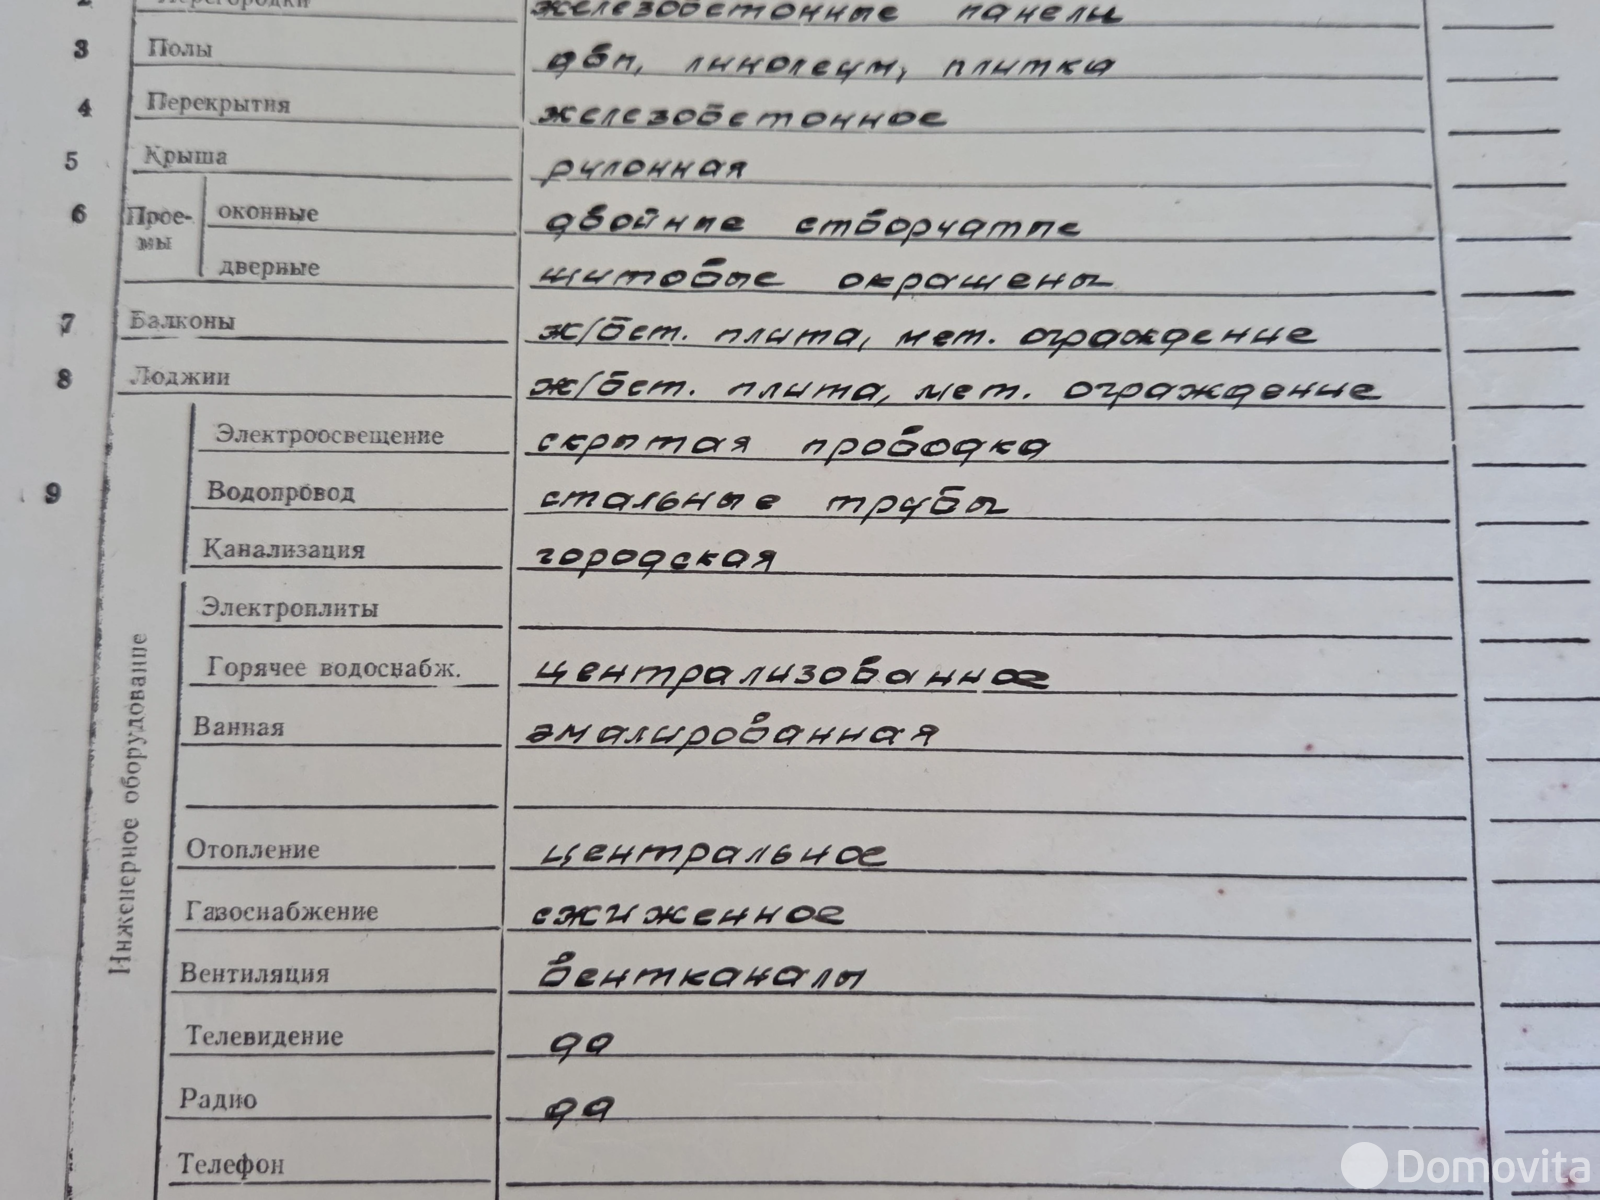 2 Перегородки железобетонные панели
3 Полы двп, линолеум, плитка
4 Перекрытия железобетонное
5 Крыша рулонная
6 Прое-мы оконные двойные створчатые
дверные щитовые окрашены
7 Балконы ж/бет. плита, мет. ограждение
8 Лоджии ж/бет. плита, мет. ограждение
9 Инженерное оборудование
Электроосвещение скрытая проводка
Водопровод стальные трубы
Канализация городская
Электроплиты
Горячее водоснабж. централизованное
Ванная эмалированная
Отопление центральное
Газоснабжение сжиженное
Вентиляция вентканалы
Телевидение да
Радио да
Телефон
Domovita